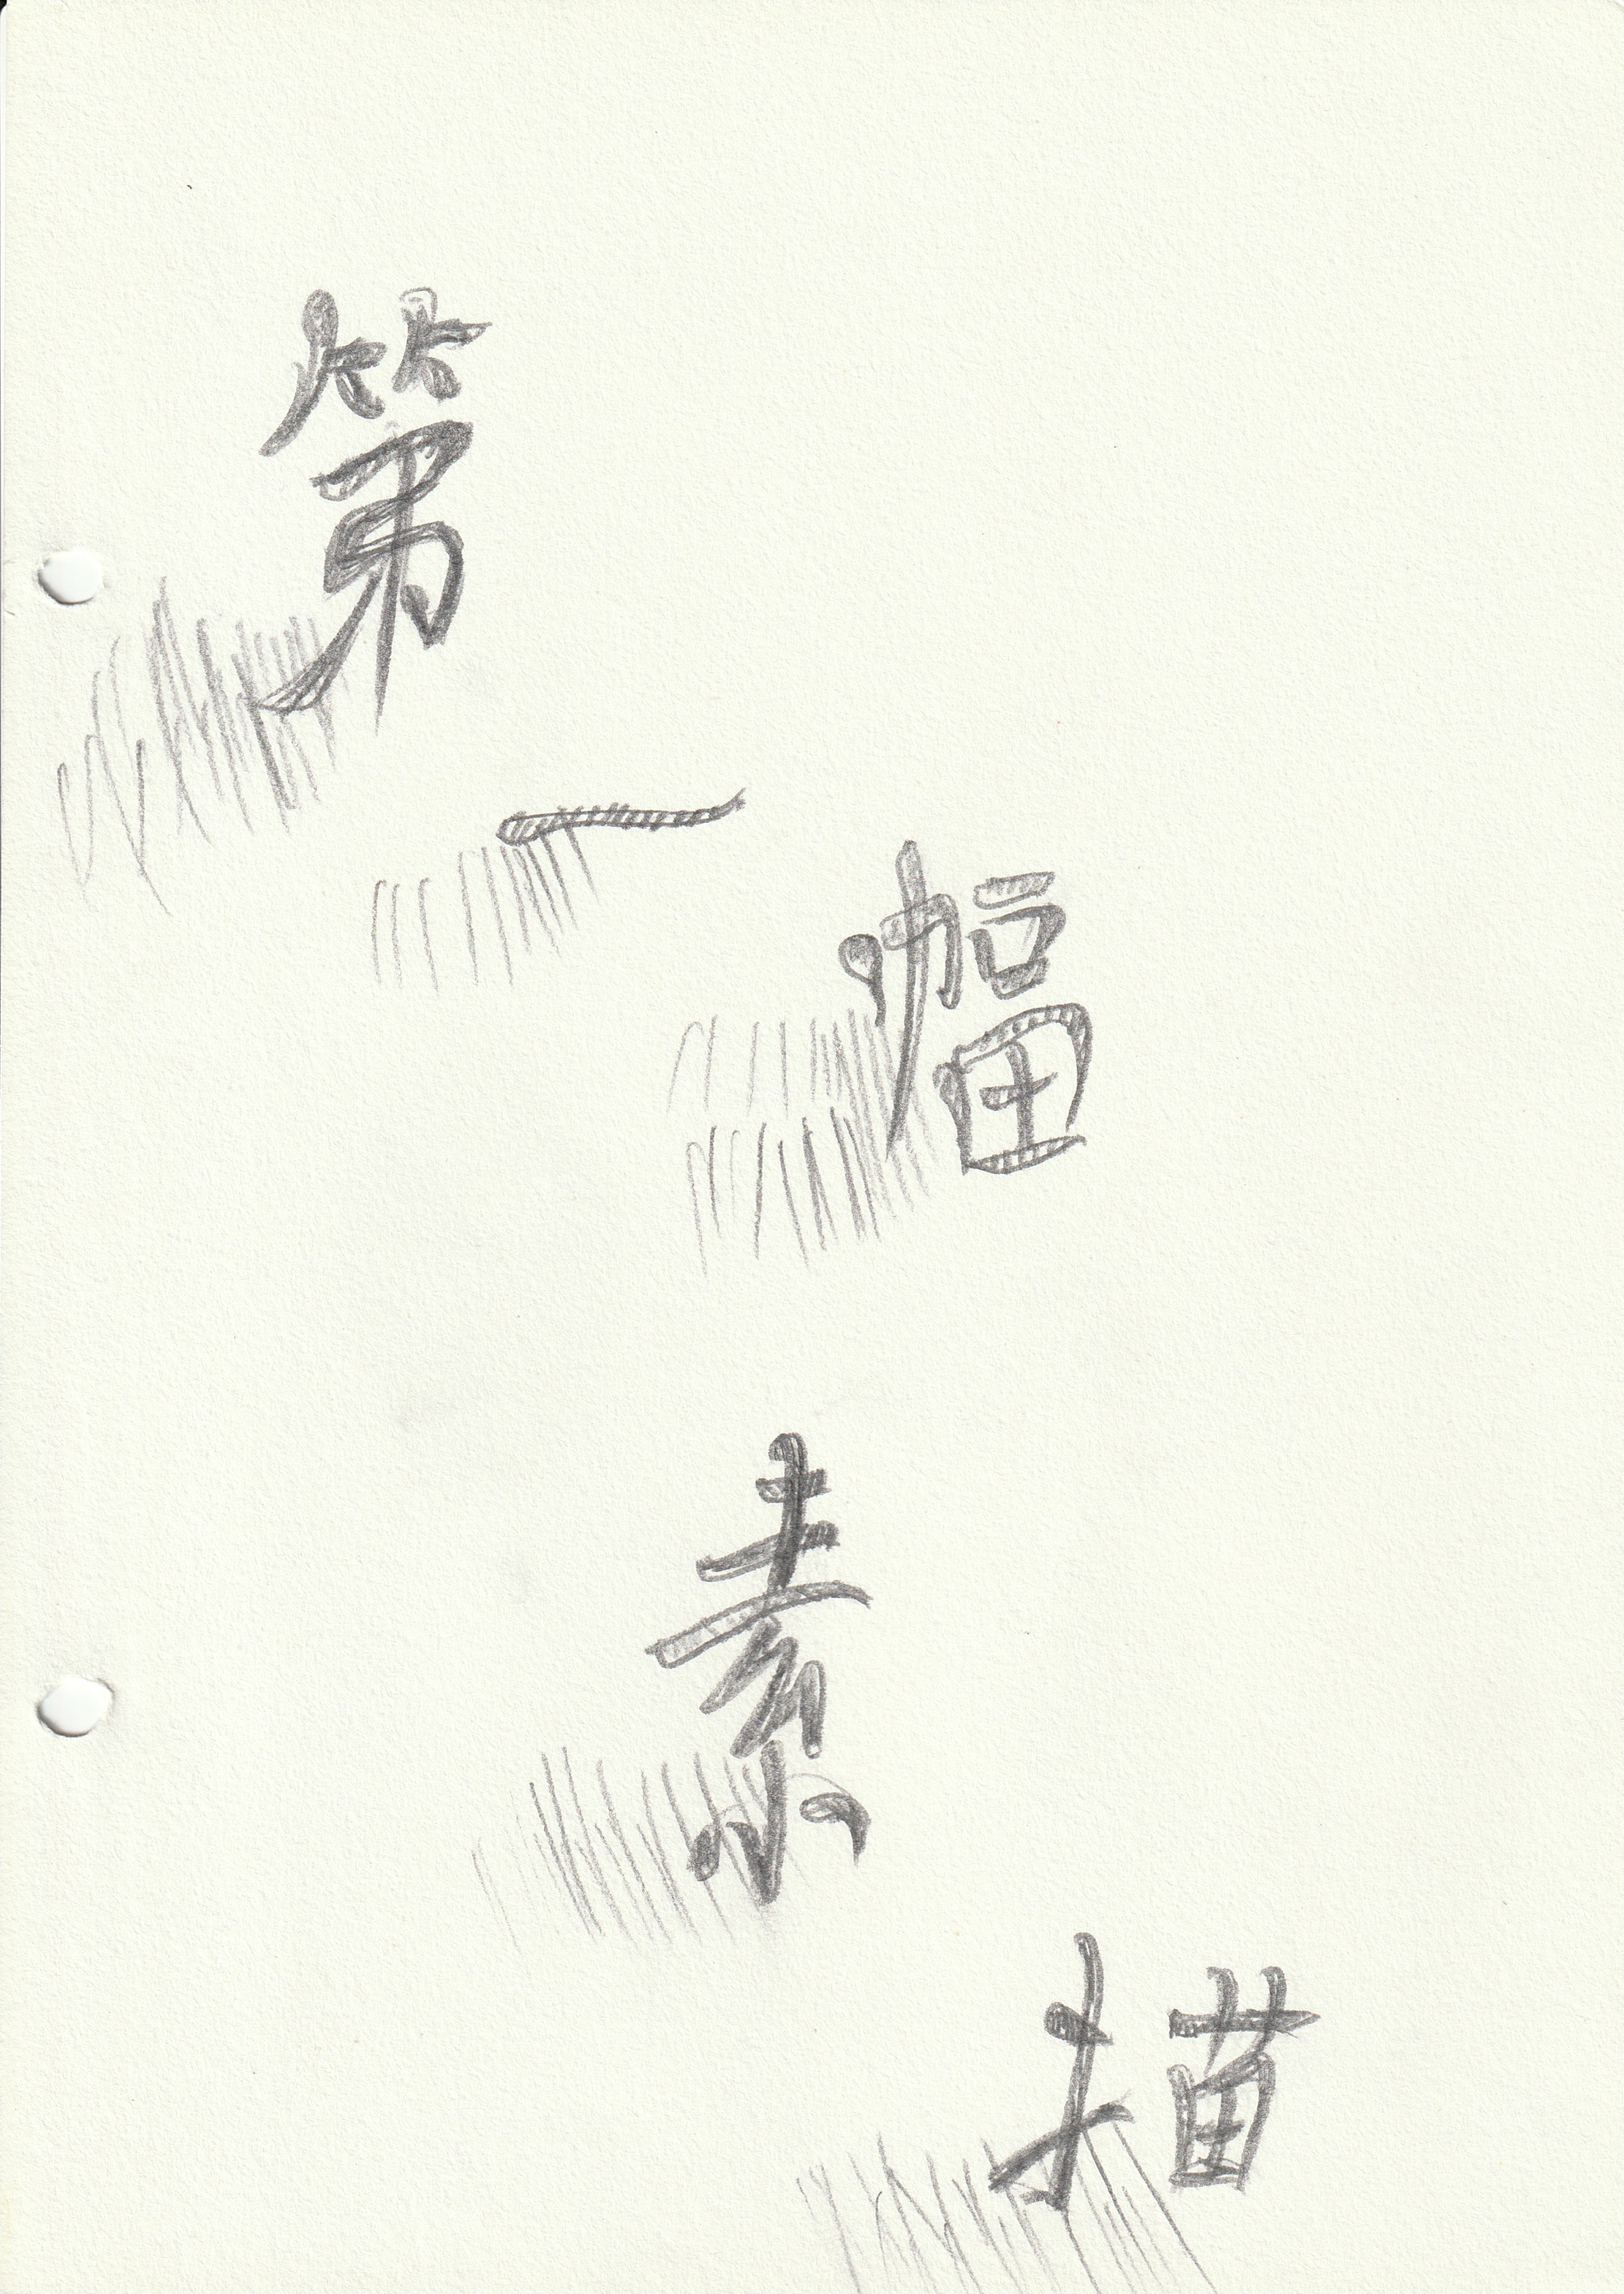 第一幅
素描